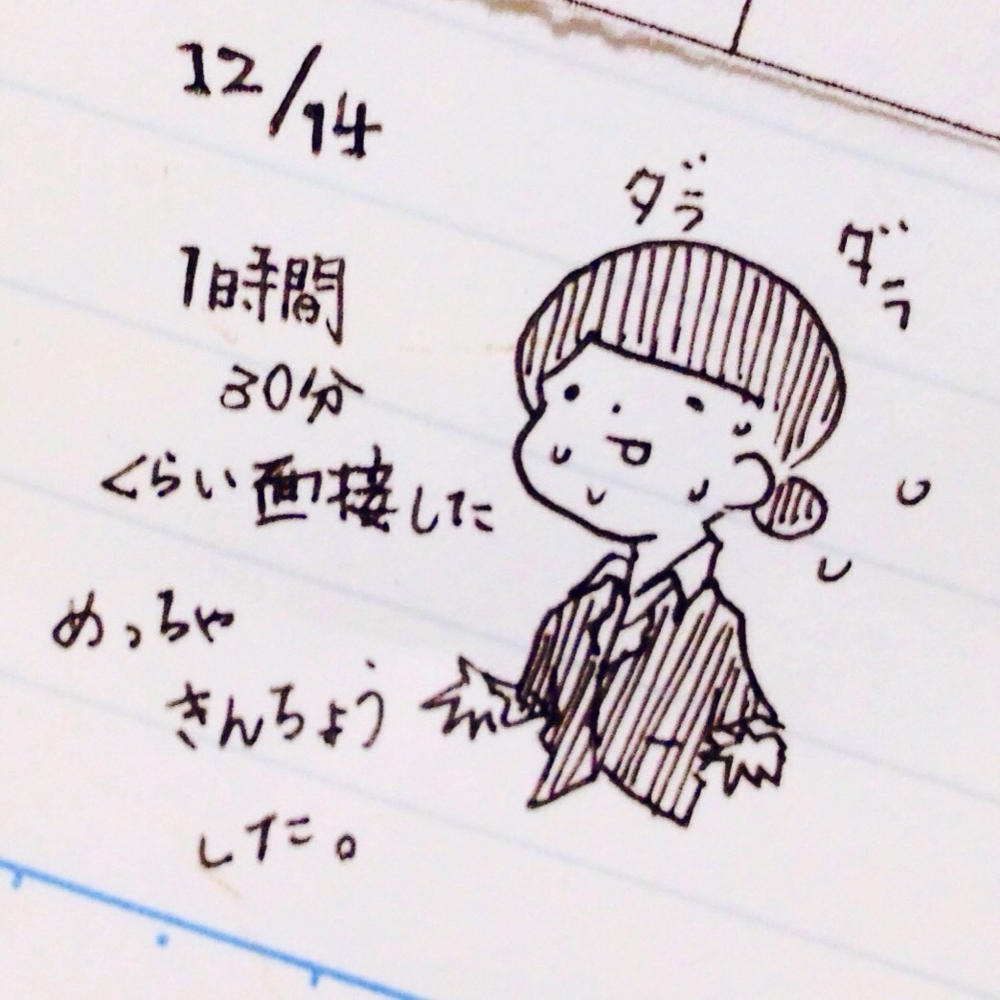 12/14
1時間
30分
くらい面接した
めっちゃ
きんちょう
した。
ダラ
ダラ